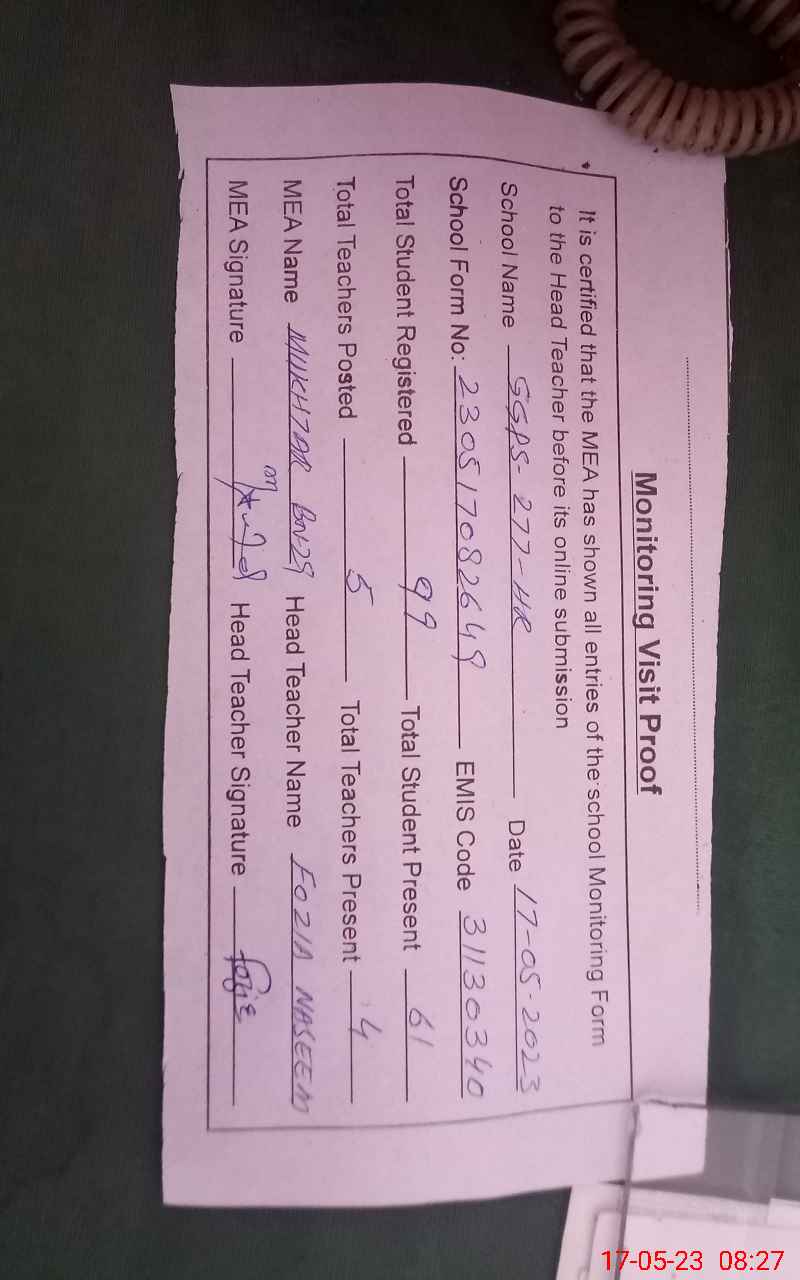 Monitoring Visit Proof
It is certified that the MEA has shown all entries of the school Monitoring Form
to the Head Teacher before its online submission
School Name GGPS-277-HR Date 17-05-2023
School Form No: 23051708264 9 EMIS Code 31130340
Total Student Registered 99 Total Student Present 61
Total Teachers Posted 5 Total Teachers Present 4
MEA Name MUKHTAR Head Teacher Name FOZIA NASEEM
MEA Signature Head Teacher Signature fozie
17-05-23 08:27